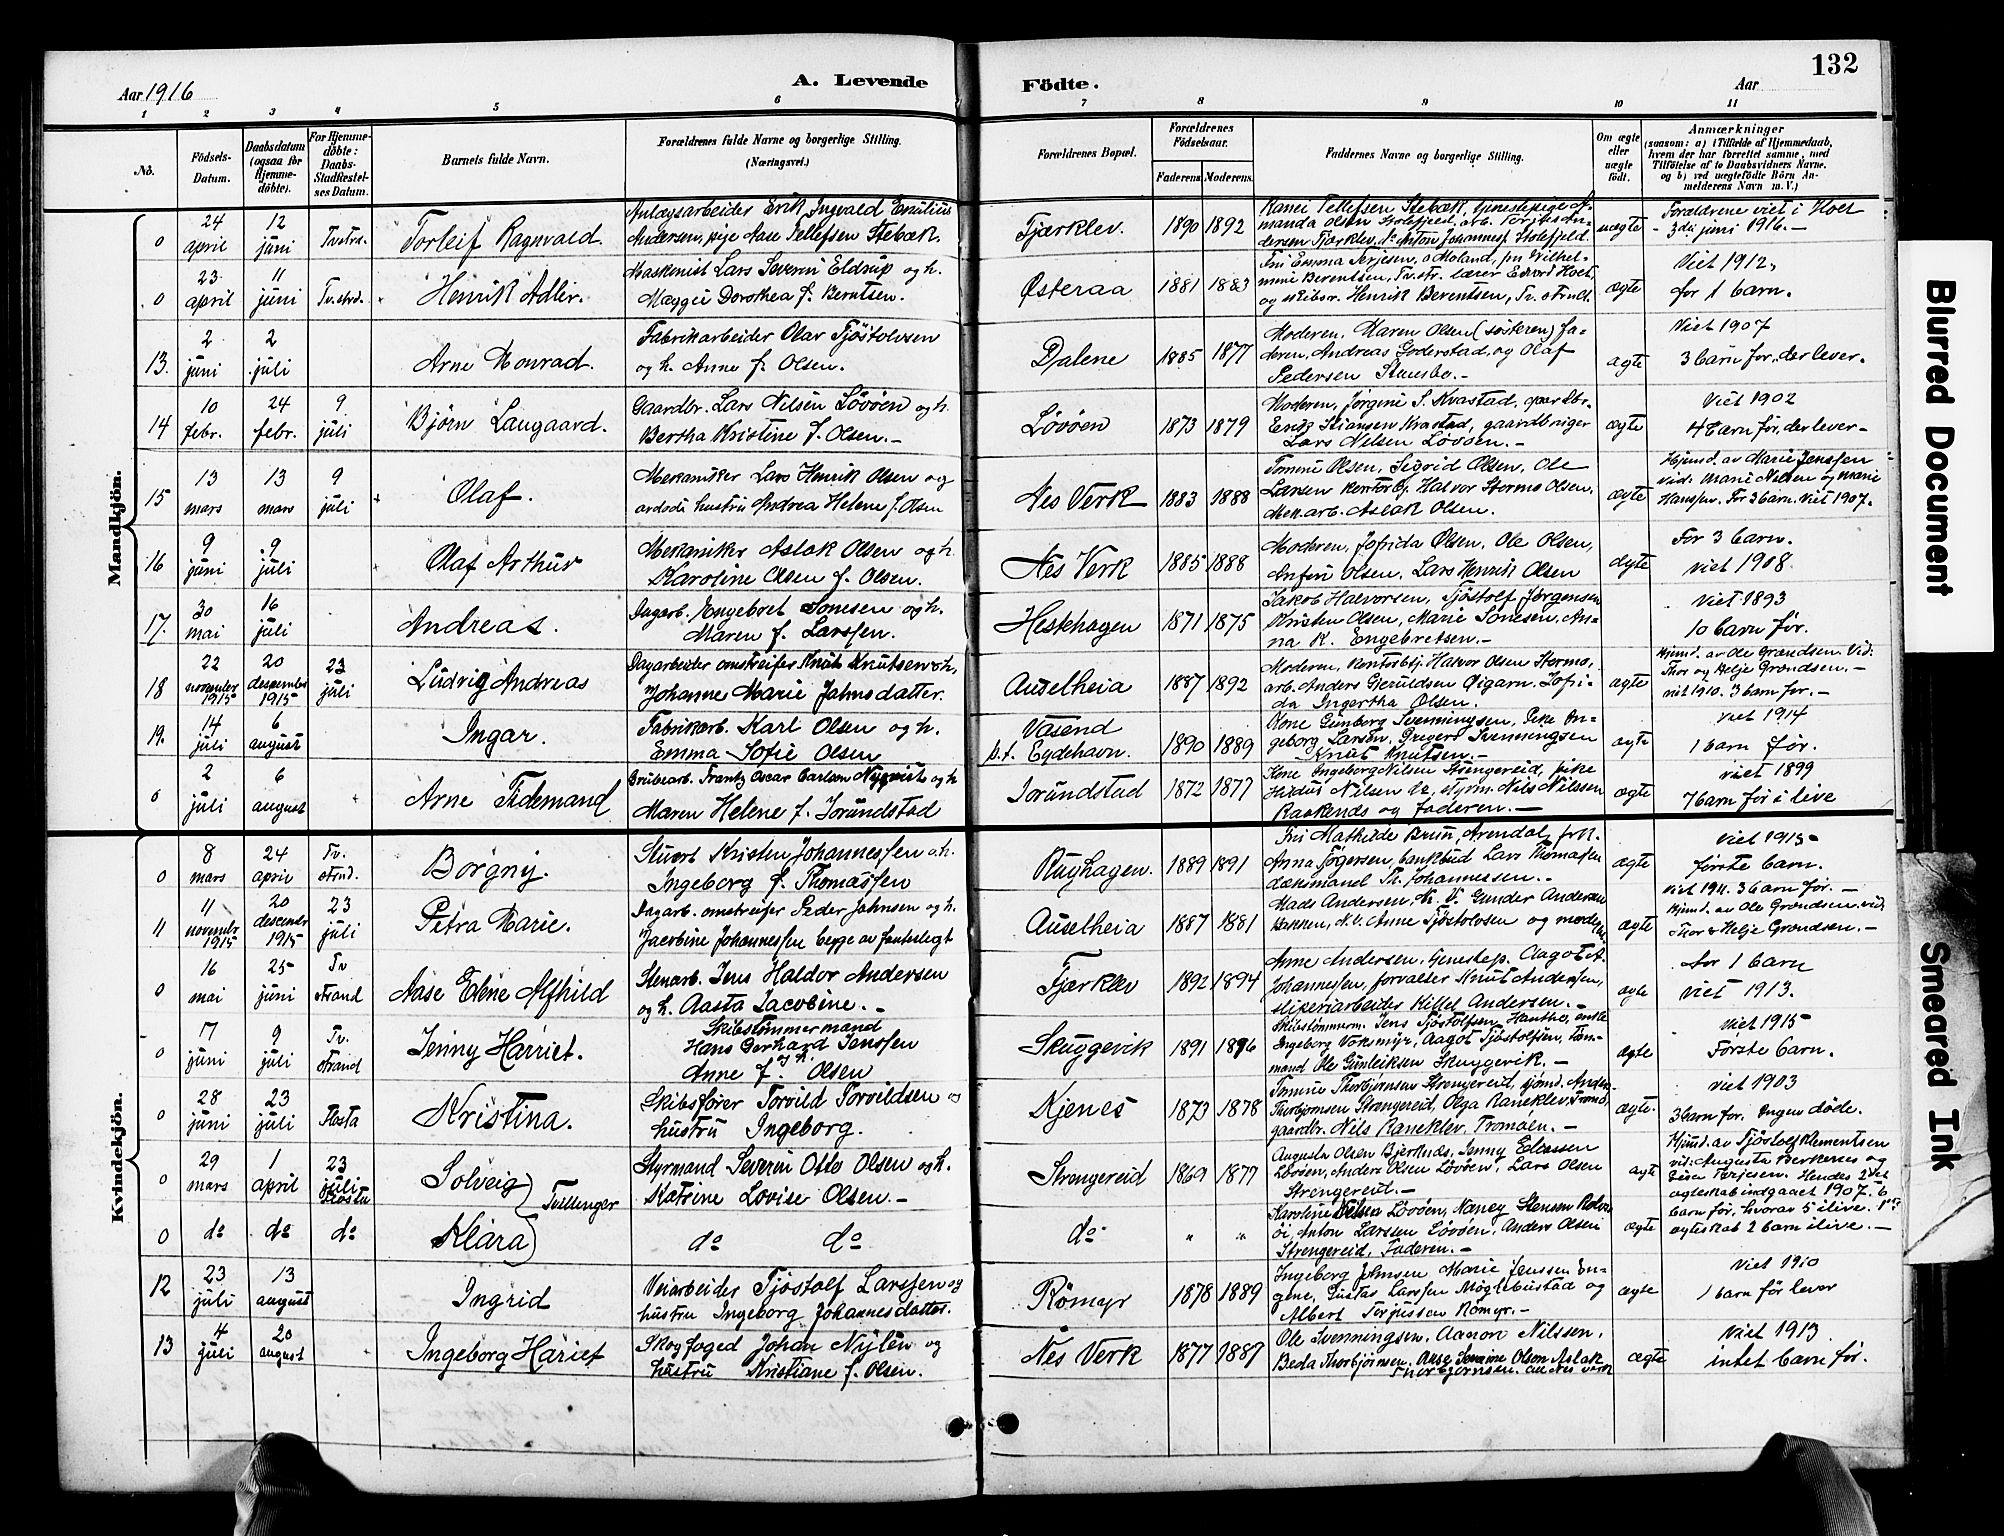 132
Aar 1916
A. Levende
Födte.
Aar
1 2 3 4 5 6 7 8 9 10 11
No.
Födsels-Datum.
Daabsdatum (ogsaa før Hjemme-døbte).
For Hjemme-döbte: Daabs-Stadfæstelses Datum.
Barnets fulde Navn.
Forældrenes fulde Navne og borgerlige Stilling. (Næringsvei.)
Forældrenes Bopæl.
Forældrenes Födselsaar.
Faderens. Moderens.
Faddernes Navne og borgerlige Stilling.
Om ægte eller uægte födt.
Anmærkninger
(saasom: a) i Tilfælde af Hjemmedaab, hvem der har forrettet samme, med Tilföielse af to Daabsvidners Navne. og b) ved uægtefödte Börn Anmelderens Navn m. V.)
Mandkjön.
0 24 april 12 juni Tvstra. Torleif Ragnvald. Anlægsarbeider Erik Ingvald Emilius
Andersen, pige Aase Tellefsen Stebæk. Fjærklev. 1890 1892 uægte Forældrene viet i Holt
- 3die juni 1916. -
0 23 april 11 juni Tv. strd. Henrik Adler. Maskinist Lars Severin Eldrup og h.
Maggie Dorothea f. Berntsen. Østeraa 1881 1883 og skibsr. Henrik Berentsen, Tv. strand. ægte Viet 1912,
for 1 barn.
13. 2 juni 2 juli Arne Konrad. Fabrikarbeider Olav Tjöstolvsen
og h. Anne f. Olsen. Dalene 1885 1877 Moderen, Maren Olsen (søsteren) fa-
deren, Andreas Goderstad, og Olaf
Pedersen Stuesbo. - ægte Viet 1907
3 barn før, der lever -
14 10 febr. 24 febr. 9 juli Bjørn Laugaard. Gaardbr. Lars Nilsen Løvøen og h.
Bertha Kristine f. Olsen. - Løvøen 1873 1879 Moderen, Jørgine S. Kvastad,
gaardbruger
Lars Nilsen Løvøen. - ægte Viet 1902
4 barn før, der lever -
15 13 mars 13 mars 9 juli Olaf. Mekaniker Lars Henrik Olsen og
hustru Andrea Helene f. Olsen Nes Verk 1883 1888 Tomine Olsen, Sigrid Olsen, Ole
Larsen kontorbj. Halvor Stormo Olsen.
Mek. arb. Aslak Olsen. ægte Hjmd. av Marie Jenssen
vid: Marie Nilsen og Marie
Hanssen. For 3 barn. Viet 1907.
16 9 juni 9 juli Olaf Arthur Mekaniker Aslak Olsen og h.
Karoline Olsen f. Olsen. Nes Verk 1885 1888 Moderen, Jofrida Olsen, Ole Olsen,
Anfin Olsen, Lars Henrik Olsen ægte For 3 barn.
viet 1908.
17. 30 mai 16 juli Andreas. Dagarb. Engebret Sonesen og h.
Maren f. Larssen. Heskhagen 1871 1875 Jakob Halvorsen, Tjöstolf Jørgensen
Kristen Olsen, Marie Sonesen, An-
na K. Engebretsen. - Viet 1893
10 barn før.
18 22 november 1915 20 descember 1915 23 juli Ludvig Andreas Dagarbeider omstreifer Knut Knutsen & h.
Johanne Marie Jahnsdatter. Auselheia 1887 1892 Moderen, kontorbtj. Halvor Olsen Stormo,
arb. Anders Gjeruldsen Øigarn. Jofri-
da Ingertha Olsen. ægte Hjmd. av Ole Grøndsen. Vid:
Thor og Helje Grøndsen. -
viet 1910. 3 barn før. -
19. 14 juli 6 august Ingar. Fabrikarb. Karl Olsen og h.
Emma Sofie Olsen Vasend
p.t. Eydehavn. 1890 1889 Kone Gunborg Svenningsen, Pike In-
geborg Larsen, Gregers Svenningsen
Knut Knutsen. - ægte viet 1914
1 barn før.
0 2 juli 6 august Arne Tidemand Grubearb. Frantz Oscar Carlsen Nyqvist og h
Maren Helene f. Jorundstad Jorundstad 1872 1877 Kone Ingeborg Nilsen Strengereid, pike
styrm. Nils Nilssen
Raakenes og faderen. - ægte viet 1899
7 barn før i live
Kvindekjön.
0 8 mars 24 april Tv. strnd. Borgny. Stuert Kristen Johannessen o.h.
Ingeborg f. Thomassen Rughagen. 1889 1891 Fru Mathilde Bruu, Arendal, frk.
Anna Fögersen, bankbud Lars Thomassen
dæksmand Th. Johannessen. - ægte viet 1915
første barn.
11 11 november 1915 20 descembr 1915 23 juli Petra Marie. Dagarb. omstreifer Peder Jahnsen og h.
Jacobine Johannessen begge av fanteslegt Auselheia 1887 1881 Mads Andersen, N. V. Gunder Andersen
Bakken, N.V. Anne Tjöstolvsen og moderen ægte viet 1911. 3 barn før. -
Hjmd. av Ole Grøndsen. vid:
Thor & Helje Grøndsen. -
0 16 mai 25 juni Tv strand Aase Elene Alfhild Stenarb. Jens Haldor Andersen
og h. Aasta Jacobine. - Fjærklev 1892 1894 Anne Andersen, Aagot A.
Johannessen, forvalter Knut Anderssen,
sliperiarbeider Kittel Andersen. - ægte for 1 barn
viet 1913.
0 17 juni 9 juli Tv. strand Jenny Harriet. Skibstømmermand
Hans Gerhard Jenssen
og h.
Anne f. Olsen Skuggevik 1891 1896 Skibstømmerm. Jens Tjöstolfsen Hanthe, enke
Ingeborg Voksmyr, Aagot Tjöstolfsen, Tøm-
mand Ole Gunleiksen Skuggevik. - ægte Viet 1915
Förste barn.
0 28 juni 23 juli Flosta Kristina. Skibsfører Torvild Torvildsen og
hustru Ingeborg. Kjenes 1873 1878 Tomine Thorbjørnsen Strengereid,
Thorbjornsen Strengereid, Olga Raneklev, Tromø,
gaardbr. Nils Raneklev, Tromöen. - ægte. viet 1903
3 barn før. Ingen døde.
0 29 mars 1 april 23 juli Flosta Solveig
Tvillinger Styrmand Severin Otto Olsen og h.
Katrine Lovise Olsen. - Strengereid 1869 1877 Augusta Olsen Bjerkenes, Jenny Eliassen
Anders Olsen Løvøen, Lars Olsen
Strengereid. - ægte Hjmd. av Tjöstolf Klementsen
vid: Augusta Berkenes og
Terjesen. Hendes 2det
ægteskab indgaaet 1907. 6
barn før, hvorav 5 ilive. 1ste
ægteskab 2 barn ilive. -
0 do do do Klara do do do " " Karoline Nilsen Løvøen, Nancy Stensen
Anton Larssen Løvøen, Anders Olsen
Strengereid, Faderen. - ægte
12 23 juli 13 august Ingrid Veiarbeider Tjöstolf Larssen og
hustru Ingeborg Johannesdatter. Römyr 1878 1889 Ingeborg Johnsen Marie Jenssen En-
gene, Gustav Larssen Möglebustad og
Albert Terjussen Römyr. - ægte viet 1910
1 barn før lever
13 4 juli 20 august Ingeborg Hariet Skogfoged Johan Nylén og
hustru Kristiane f. Olsen. Nes Verk 1877 1887 Ole Svenningsen, Aanon Nilssen,
Beda Thorbjörnsen, Olsen Aslak
Thorbjørnsen. alle Nes Verk ægte Viet 1913
intet barn før.
Blurred Document
Smeared Ink